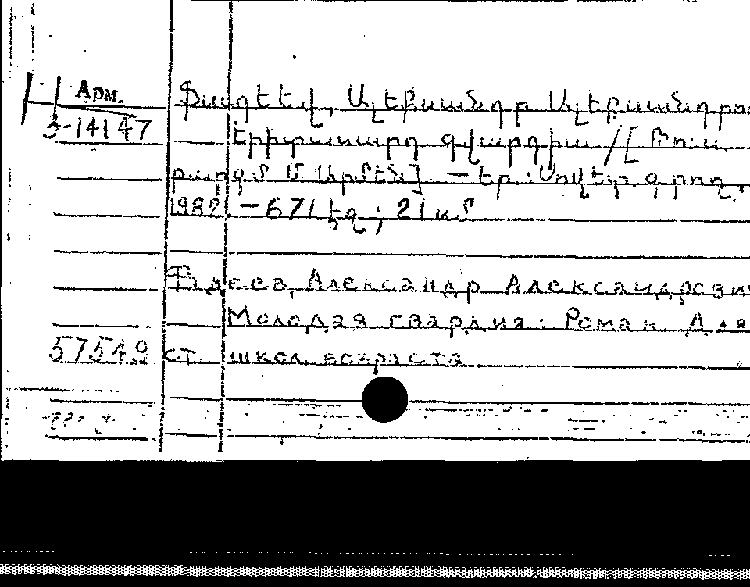 Арм.
Ֆադեև, Ալեքսանդր Ալեքսանդրո
3-14147
Երիտասարդ գվարդիա / [ Թուս.
թարգմ. Մ. Արմեն] — Եր.: Սովետ. գրող,
1982 — 671 էջ ; 21 սմ
Фадеев, Александр Александрович
Молодая гвардия: Роман Для
57549 ст. школ. возраста